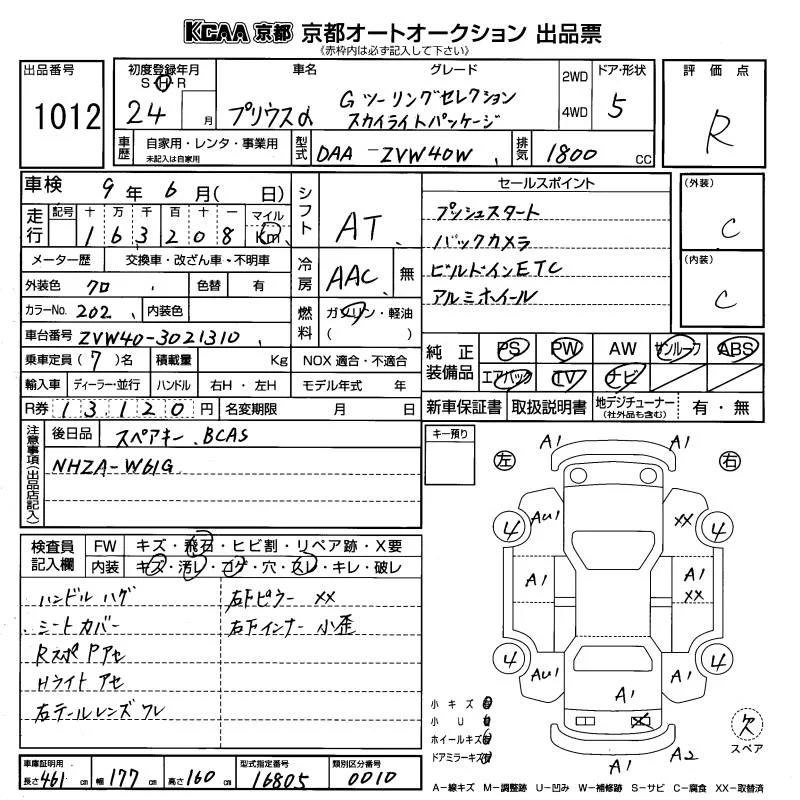 KCAA 京都 京都オートオークション 出品票
《赤枠内は必ず記入して下さい》
出品番号 初度登録年月 車名 グレード 2WD ドア・形状 評価点
S H R
1012 24 月 プリウスα Gツーリングセレクション 4WD 5 R
スカイライトパッケージ
車歴 自家用・レンタ・事業用 型式 DAA-ZVW40W 排気 1800 CC
未記入は自家用
車検 9年 6月( 日) シフト AT セールスポイント (外装)
走行 記号 十 万 千 百 十 一 マイル プッシュスタート C
1 6 3 2 0 8 Km バックカメラ
メーター歴 交換車・改ざん車・不明車 冷房 AAC 無 ビルドインETC (内装)
外装色 クロ 色替 有 アルミホイール C
カラーNo. 202 内装色 燃料 ガソリン・軽油
( )
車台番号 ZVW40-3021310 純正装備品 PS PW AW サンルーフ ABS
乗車定員(7)名 積載量 Kg NOX 適合・不適合 エアバック TV ナビ
輸入車 ディーラー・並行 ハンドル 右H・左H モデル年式 年
R券 13,120円 名変期限 月 日 新車保証書 取扱説明書 地デジチューナー 有・無
(社外品も含む)
注意事項(出品店記入) 後日品 スペアキー. BCAS キー預り
NHZA-W61G
検査員記入欄 FW キズ・飛石・ヒビ割・リペア跡・X要
内装 キズ・汚レ・コゲ・穴・スレ・キレ・破レ
ハンドル ハゲ 右下ピラー XX
シートカバー 右下インナー 小歪
Rスポ Pアセ
Hライト アセ
右テールレンズ ワレ
左 A1 右
4 AU1 XX 4
A1 A1
XX
4 AU1 A1 4
A1
A1 A2
小キズ
小U
ホイールキズ
ドアミラーキズ
欠
スペア
車庫証明用 長さ 461cm 幅 177cm 高さ 160cm 型式指定番号 16805 類別区分番号 0010
A-線キズ M-調整跡 U-凹み W-補修跡 S-サビ C-腐食 XX-取替済